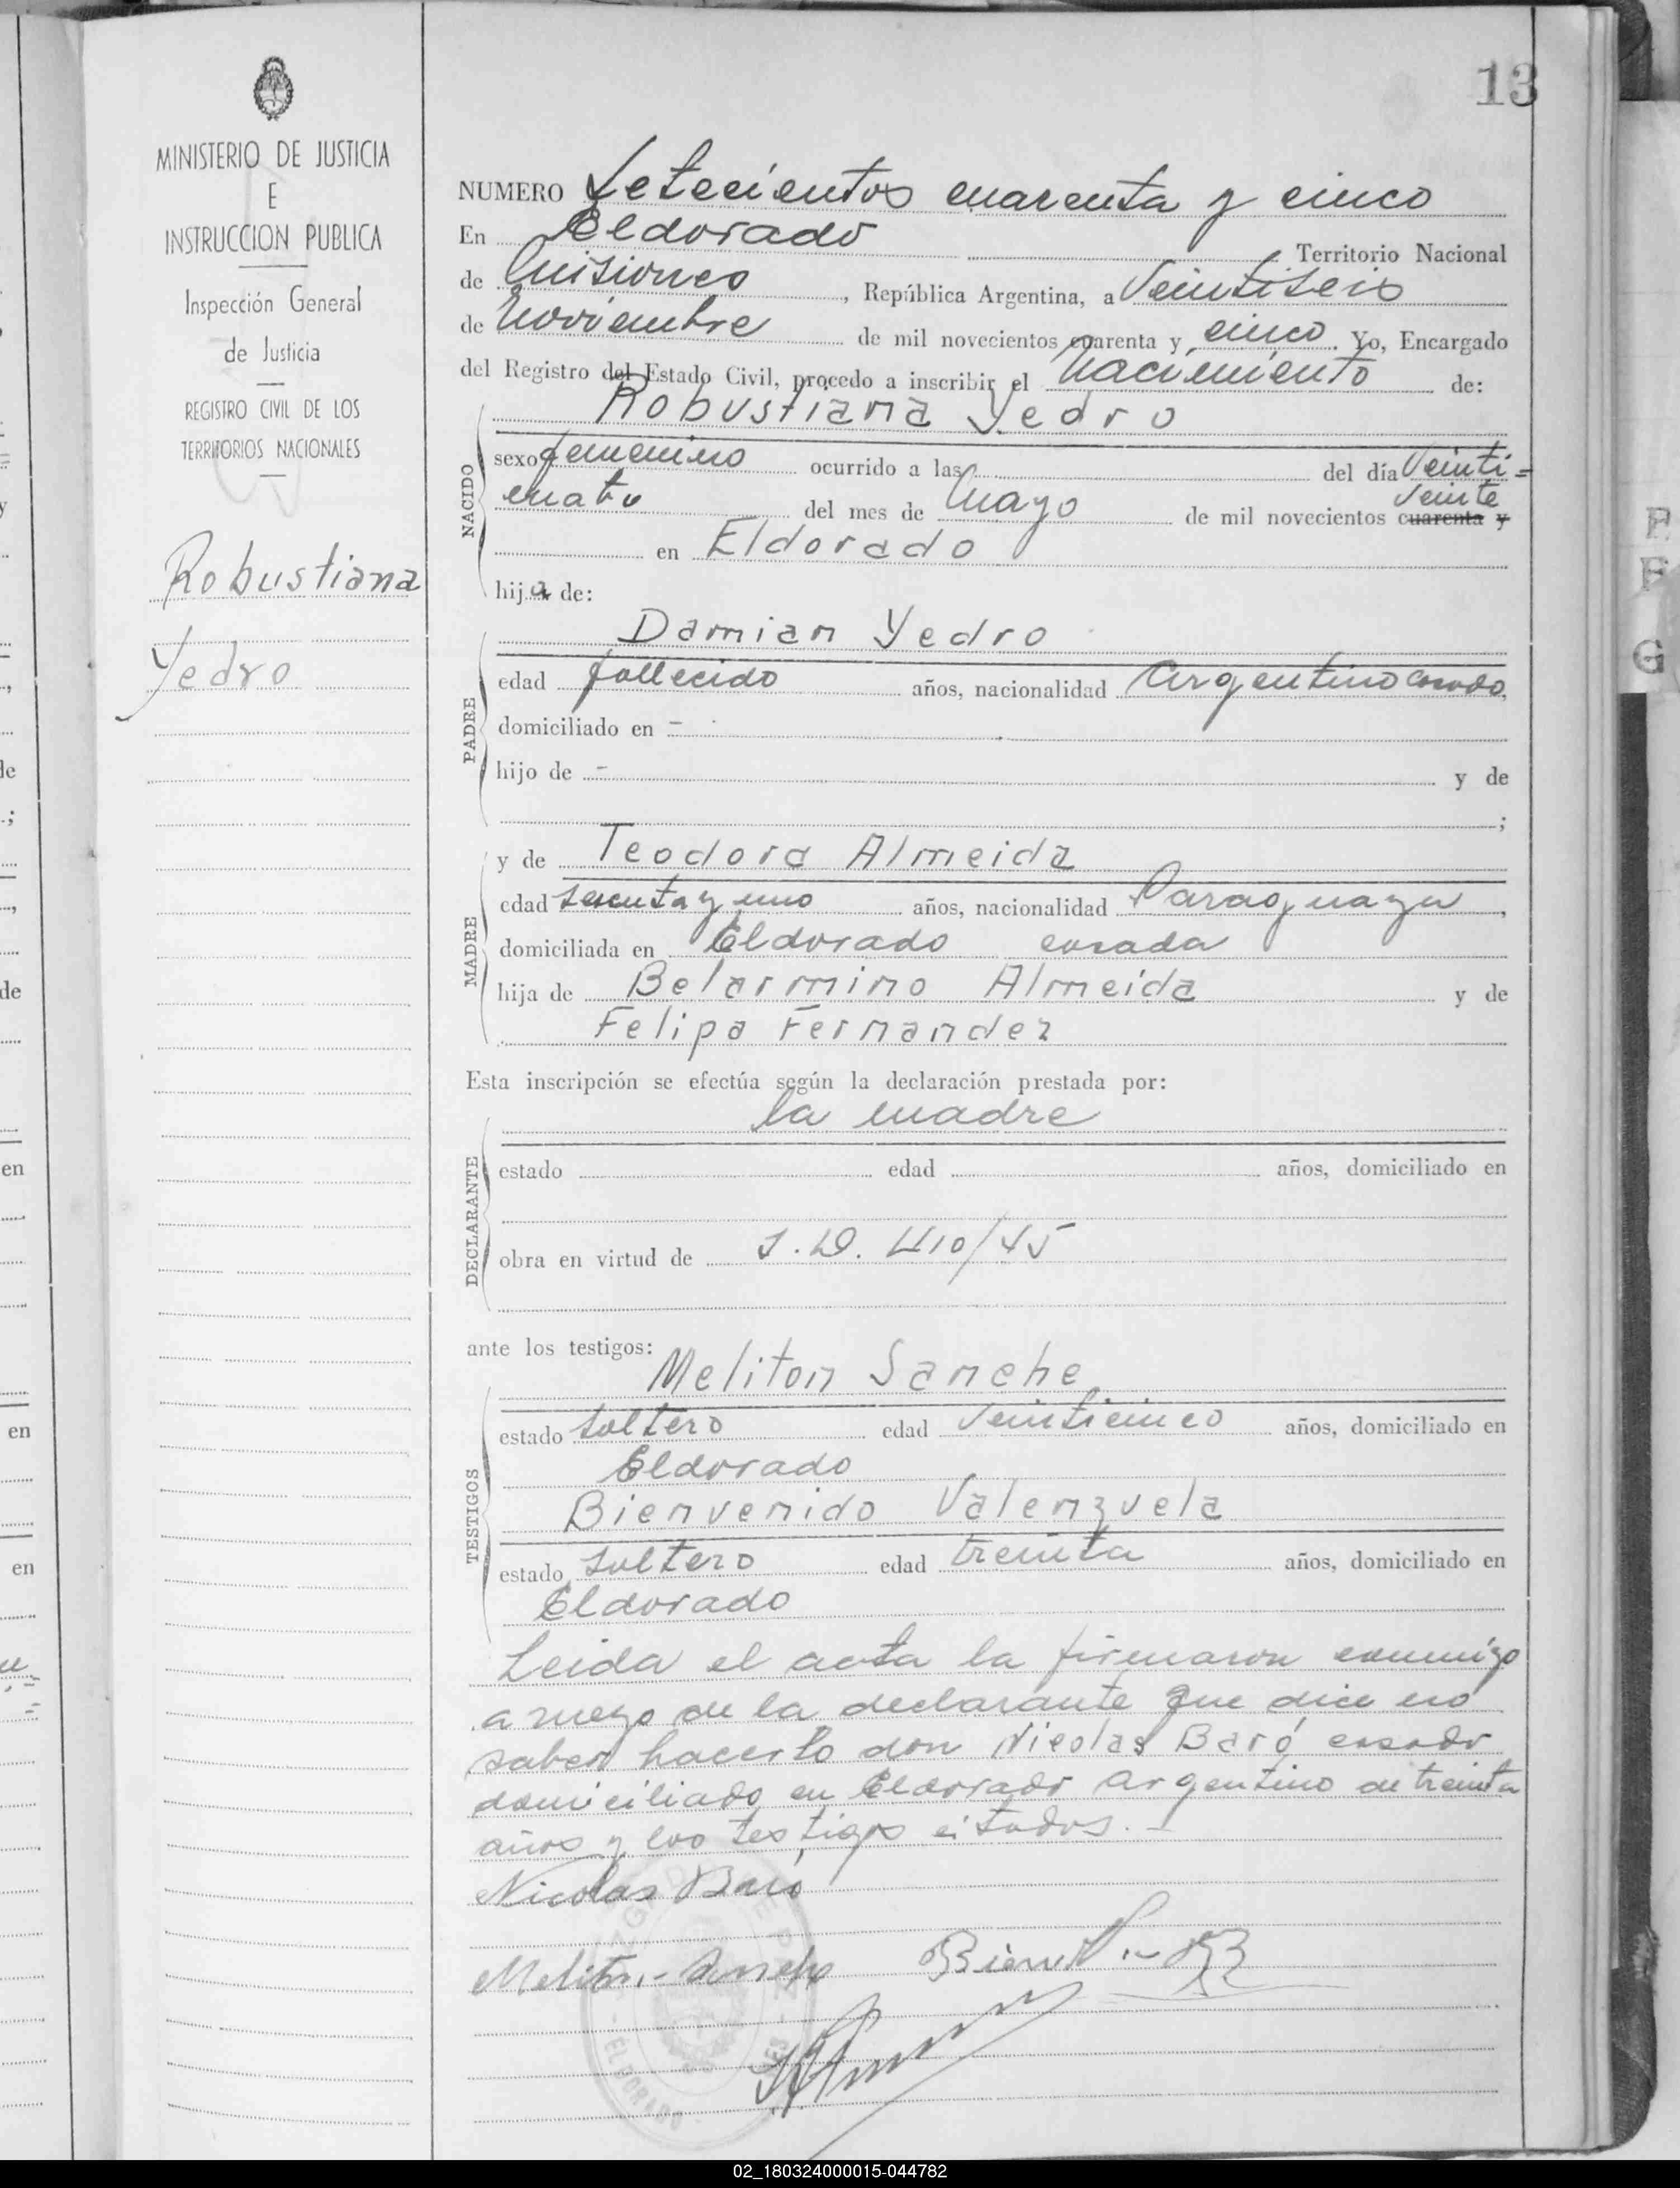 13
MINISTERIO DE JUSTICIA
E
INSTRUCCION PUBLICA
Inspección General
de Justicia
REGISTRO CIVIL DE LOS
TERRITORIOS NACIONALES
Robustiana
Yedro
NUMERO Setecientos cuarenta y cinco
En Eldorado Territorio Nacional
de Misiones, República Argentina, a Veintiseis
de Noviembre de mil novecientos cuarenta y cinco. Yo, Encargado
del Registro del Estado Civil, procedo a inscribir el Nacimiento de:
Robustiana Yedro
NACIDO
sexo femenino ocurrido a las del día Veinti=
cuatro del mes de Mayo de mil novecientos cuarenta y veinte
en Eldorado
hija de:
Damian Yedro
PADRE
edad fallecido años, nacionalidad Argentino casado,
domiciliado en -
hijo de - y de
;
y de Teodora Almeida
MADRE
edad sesenta y uno años, nacionalidad Paraguaya,
domiciliada en Eldorado casada
hija de Belarmino Almeida y de
Felipa Fernandez
Esta inscripción se efectúa según la declaración prestada por:
la madre
DECLARANTE
estado edad años, domiciliado en
obra en virtud de 410/45
ante los testigos:
Meliton Sanche
TESTIGOS
estado soltero edad Veinticinco años, domiciliado en
Eldorado
Bienvenido Valenzuela
estado soltero edad treinta años, domiciliado en
Eldorado
Leida el acta la firmaron conmigo
a ruego de la declarante que dice no
saber hacerlo don Nicolas Baró casado
domiciliado en Eldorado Argentino de treinta
años y los testigos citados.
Nicolas Baró
Meliton Sanche
ELDORADO
de
en
en
en
de
P
F
G
02_180324000015-044782